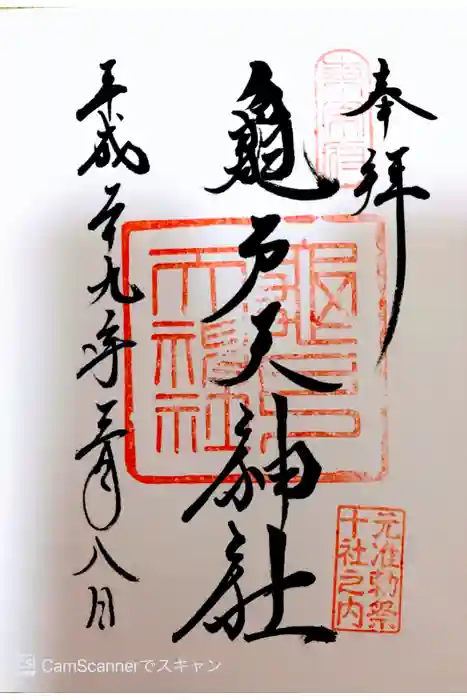 奉拝
東宰府
龜戸天神社
龜戸天神社
元准勅祭
十社之内
平成二十九年三月八日
CS CamScannerでスキャン